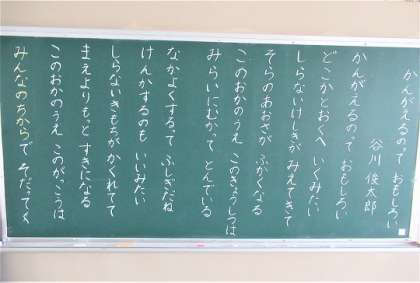 かんがえるのって おもしろい
谷川 俊太郎
かんがえるのって おもしろい
どこかとおくへ いくみたい
しらないけしきが みえてきて
そらのあおさが ふかくなる
このおかのうえ このきょうしつは
みらいにむかって とんでいる
なかよくするって ふしぎだね
けんかするのも いいみたい
しらないきもちが かくれてて
まえよりもっと すきになる
このおかのうえ このがっこうは
みんなのちからで そだってく